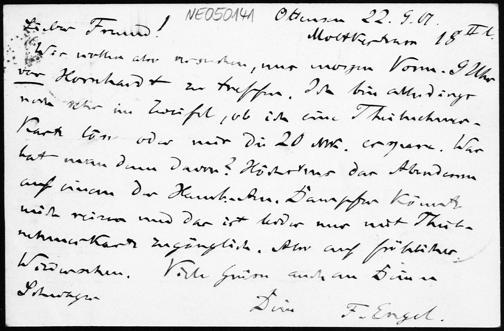 NE050141
Ottensen 22.9.01.
Lieber Freund! Moltkestrasse 18 II. l.
Wir wollen also versuchen, uns morgen Vorm. 9 Uhr
vor Hornhardt zu treffen. Ich bin allerdings
noch sehr im Zweifel, ob ich eine Theilnehmer-
Karte löse oder mir die 20 Mk. erspare. Was
hat man denn davon? Höchstens das Abendessen
auf einem der Hamb. Am. Dampfer könnte
mich reizen und das ist leider nur mit Theil-
nehmerkarte zugänglich. Also auf fröhliches
Wiedersehen. Viele Grüsse auch an Deinen
Schwager
Dein F. Engel.